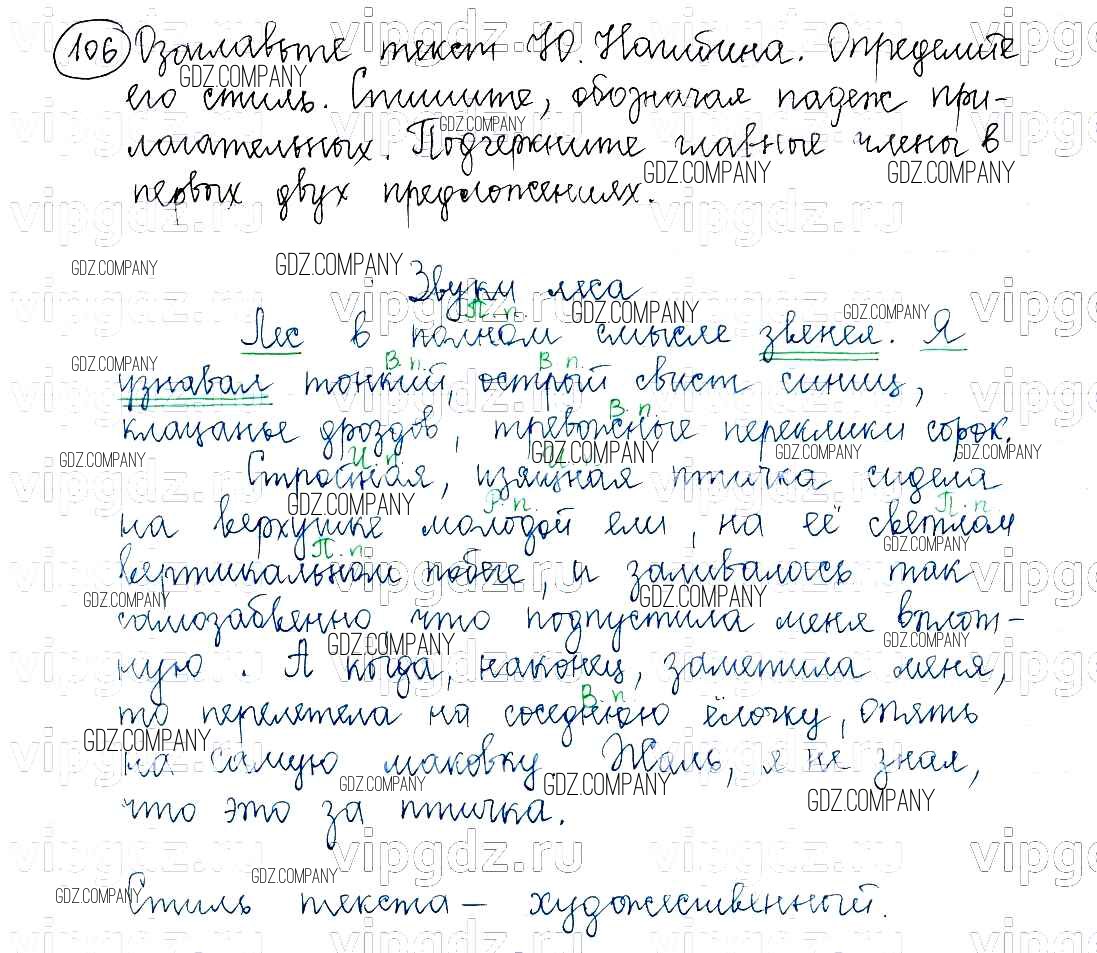 106 Озаглавьте текст Ю. Нагибина. Определите
его стиль. Спишите, обозначая падеж при-
лагательных. Подчеркните главные члены в
первых двух предложениях.
Звуки леса
П. п.
Лес в полном смысле звенел. Я
В. п. В. п.
узнавал тонкий, острый свист синиц,
В. п.
клацанье дроздов, тревожные переклики сорок.
И. п. И.
Стройная, изящная птичка сидела
Р. п. П. п.
на верхушке молодой ели, на её светлом
П. п.
вертикальном побеге, и заливалась так
самозабвенно, что подпустила меня вплот-
ную. А когда, наконец, заметила меня,
В. п.
то перелетела на соседнюю ёлочку, опять
на самую маковку. Жаль, я не знал,
что это за птичка.
Стиль текста – художественный.
GDZ.COMPANY
vipgdz.ru